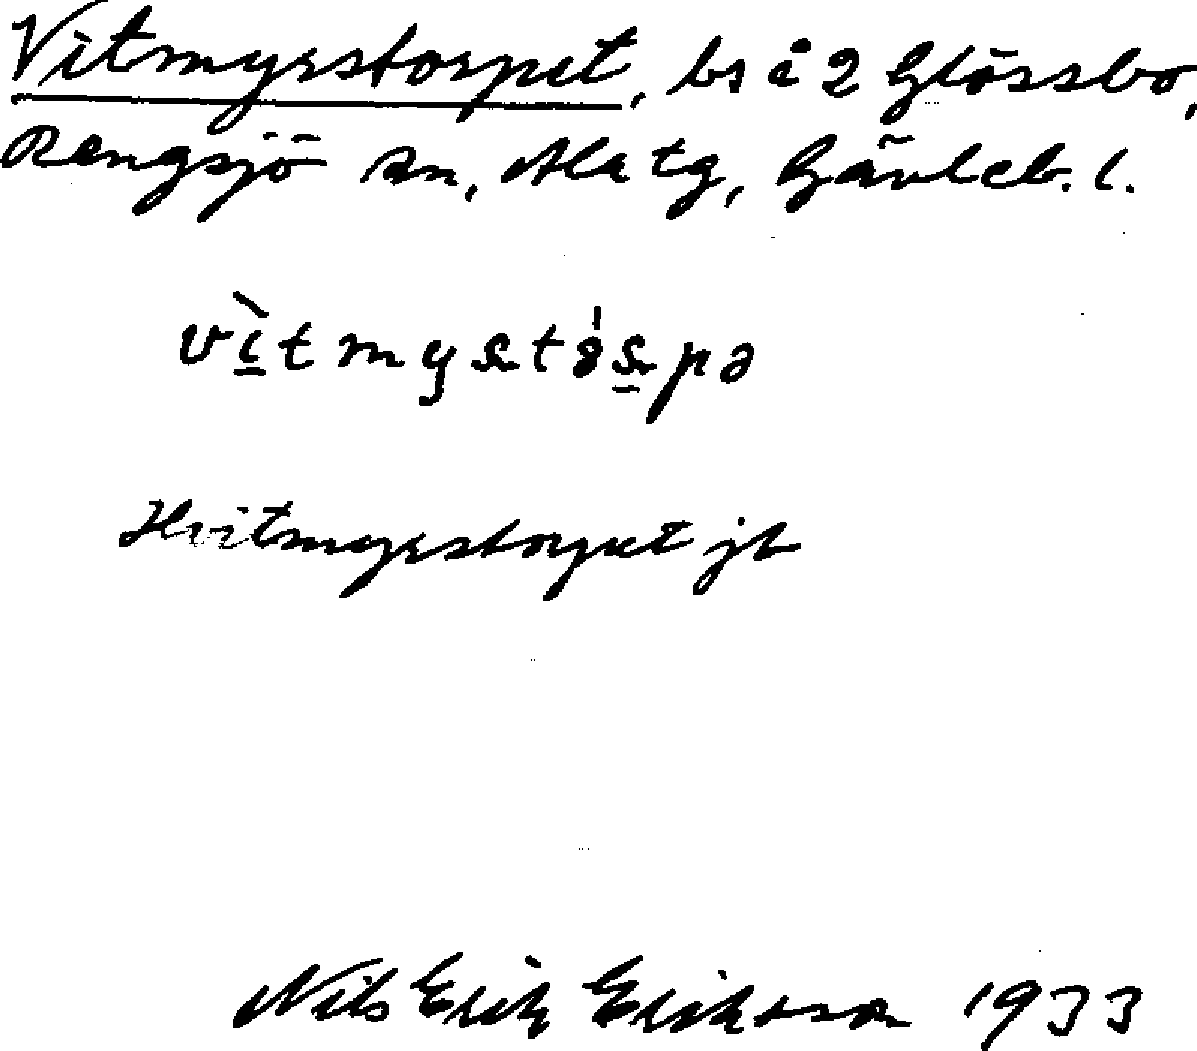 Vitmyrstorpet, bs å 2 Glössbo,
Rengsjö sn, Ala tg, Gävleb. l.
Hvitmyrstorpet jb
Nils Erik Eriksson 1933